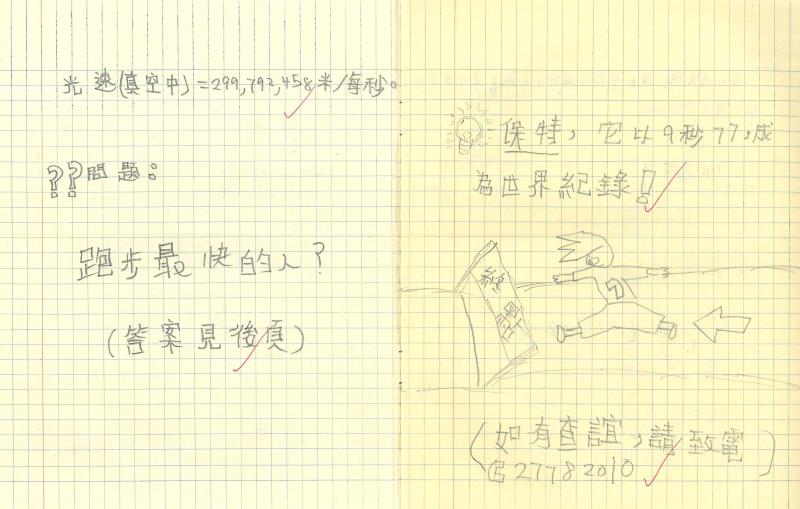 光速(真空中)=299,792,458米/每秒。
??問題:
跑步最快的人?
(答案見後頁)
保特,它以9秒77,成
為世界紀錄!
終
點
(如有查誼,請致電
27782010)